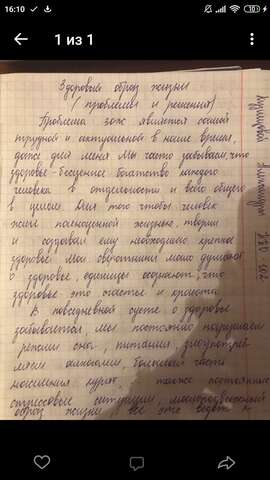 16:10
1 из 1
Здоровый образ жизни
(проблемы и решения)
Проблема зож является самой
трудной и актуальной в наше время,
даже для меня. Мы часто забываем, что
здоровье - бесценное богатство каждого
человека в отдельности и всего общего
в целом. Для того чтобы человек
жить полноценной жизнью, творил
и создавал ему необходимо крепкое
здоровье. Мы
о здоровье, единицы осознают, что
здоровье это счастье и красота.
В повседневной суете о здоровье
забывается, мы постоянно нарушаем
режимы сна, питания, злоупотреб-
ляем алкоголем, большая часть
населения курит, также постоянные
стрессовые ситуации, малоподвижный
образ жизни все это ведет к